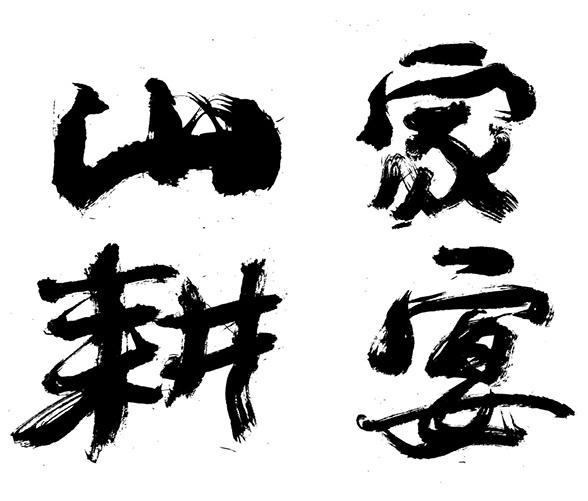 山家
耕宴